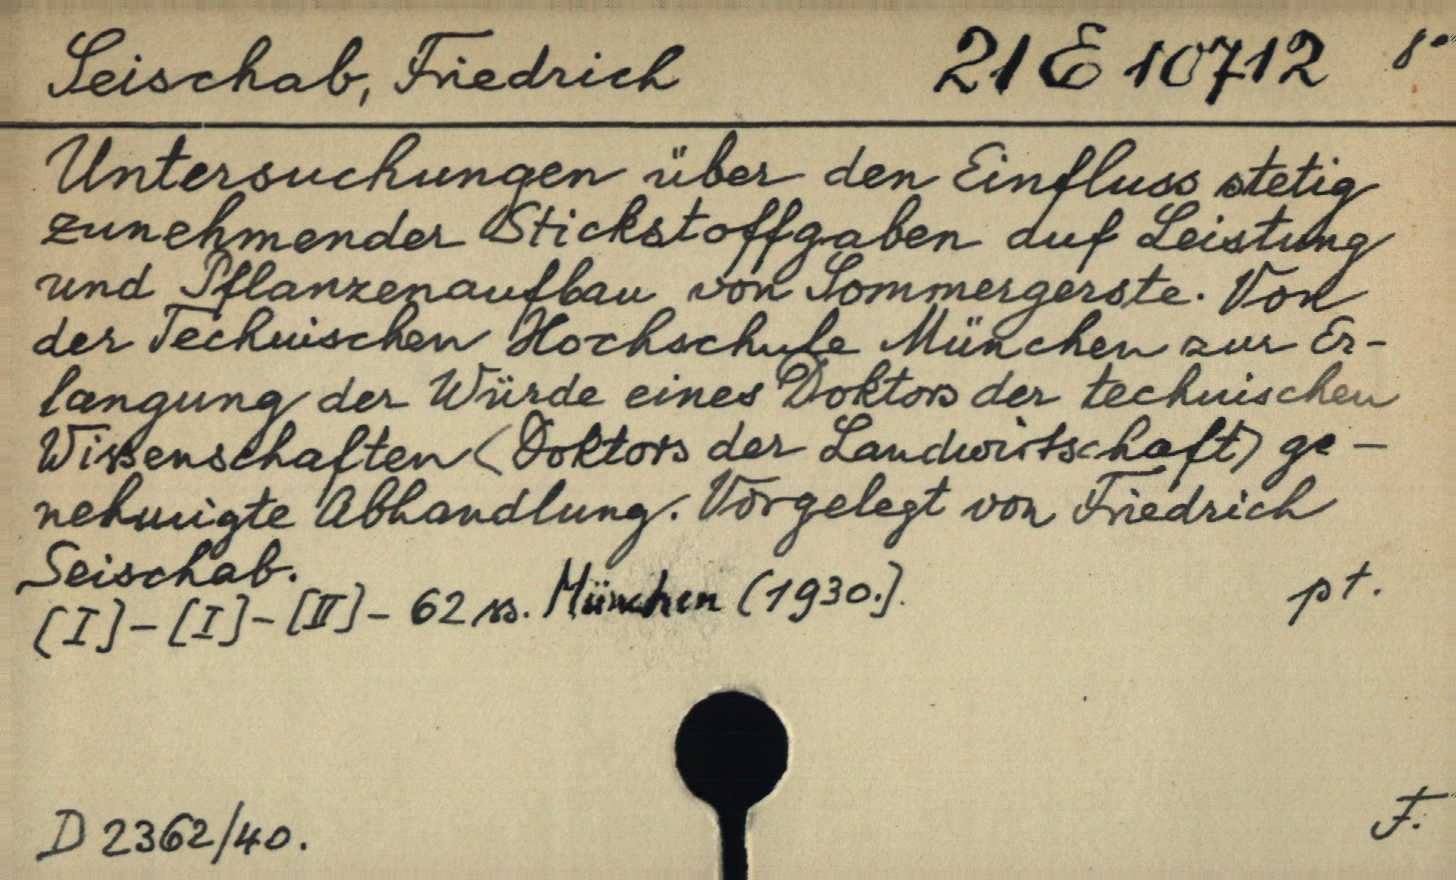 Seischab, Friedrich 21 E 10712 8°
Untersuchungen über den Einfluss stetig
zunehmender Stickstoffgaben auf Leistung
und Pflanzenaufbau von Sommergerste. Von
der Technischen Hochschule München zur Er-
langung der Würde eines Doktors der technischen
Wissenschaften (Doktors der Landwirtschaft) ge-
nehmigte Abhandlung. Vorgelegt von Friedrich
Seischab.
[I]-[I]-[II]- 62 ss. München (1930.]. pt.
D 2362/40. F.